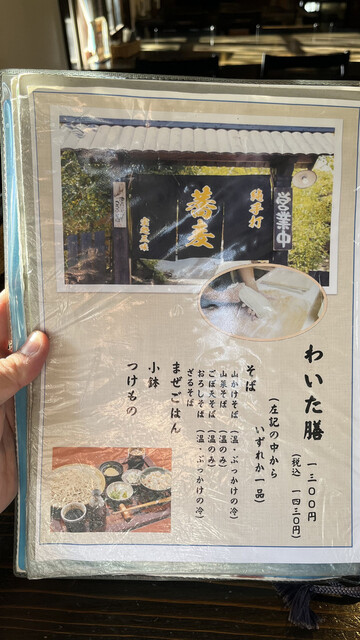 純手打
蕎麦
営業中
わいた膳 一三〇〇円
(税込 一四三〇円)
(左記の中から
いずれか一品)
そば
山かけそば (温・ぶっかけの冷)
山菜そば (温のみ)
ごぼ天そば (温のみ)
おろしそば (温・ぶっかけの冷)
ざるそば
まぜごはん
小鉢
つけもの